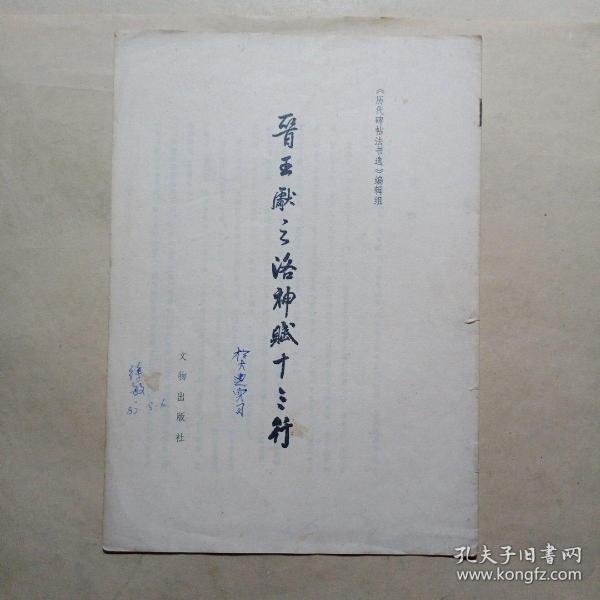 《历代碑帖法书选》编辑组
晋王献之洛神赋十三行
文物出版社
82 5.6
孔夫子旧书网
www.kongfz.com